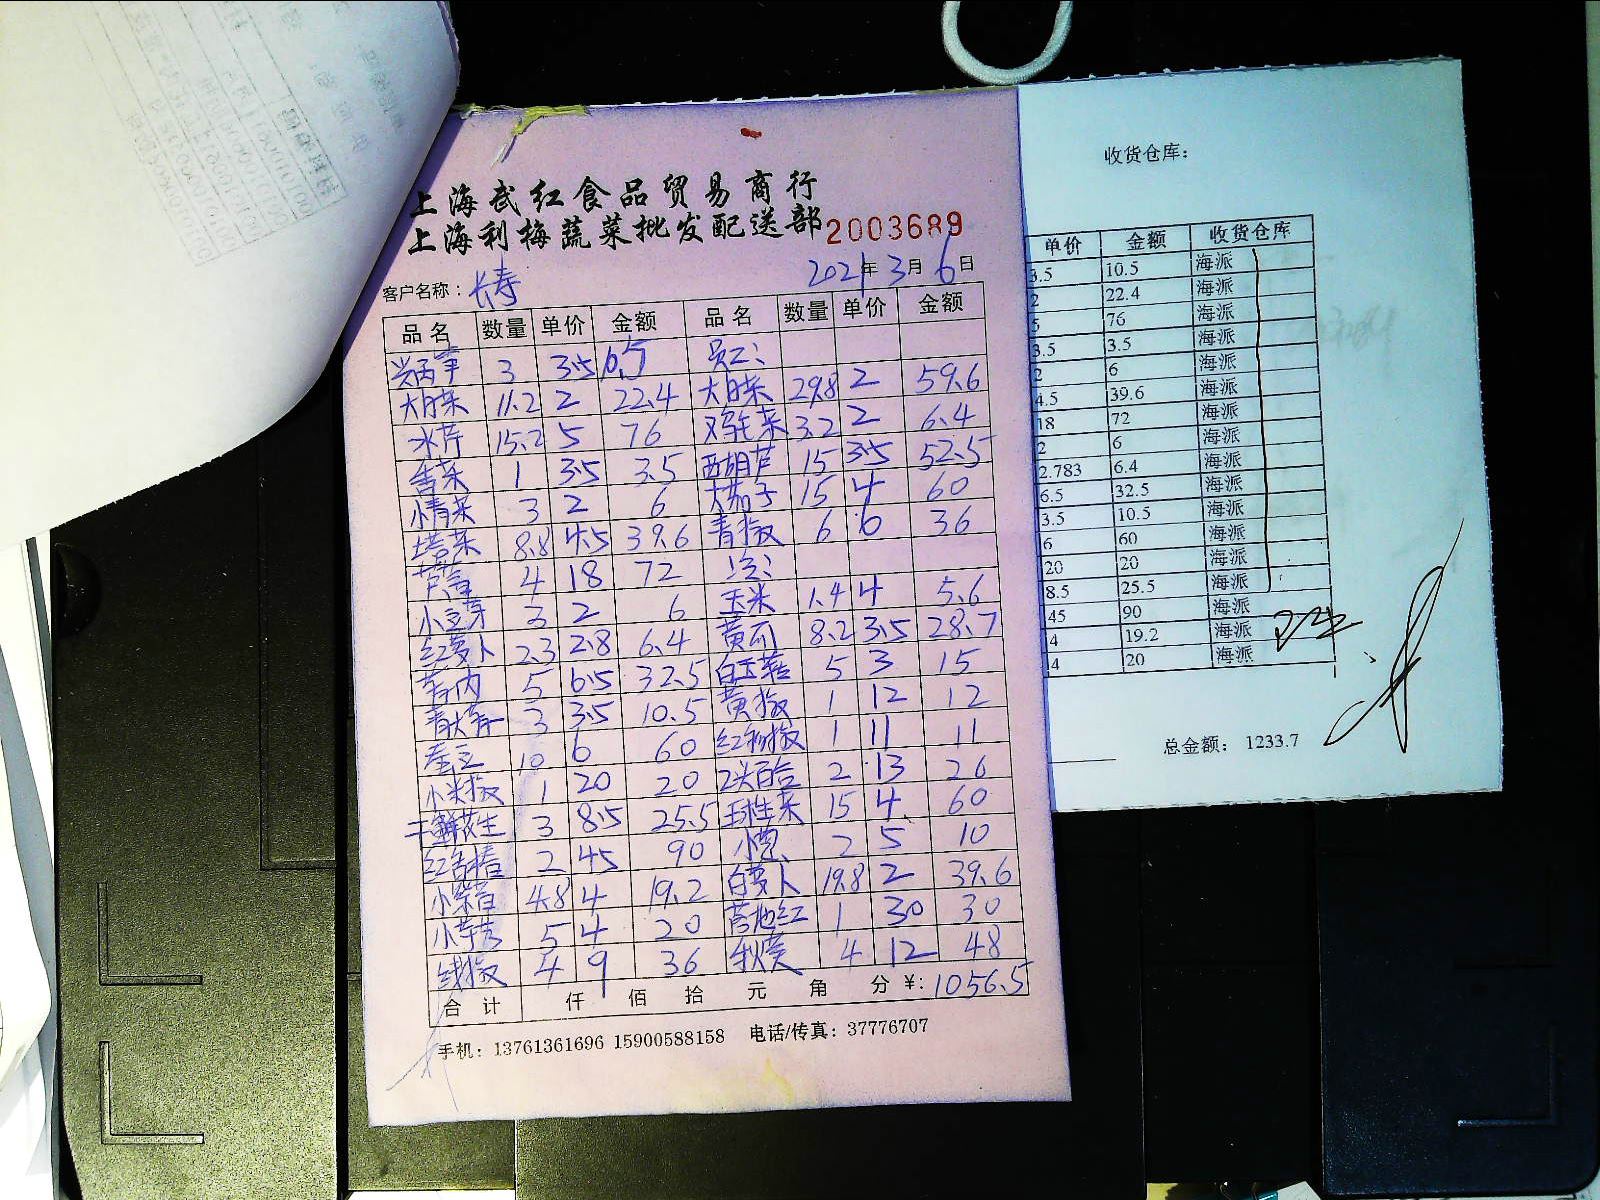 上海武红食品贸易商行
上海利梅蔬菜批发配送部 2003689
客户名称：长寿 2021年3月6日
品名 数量 单价 金额 品名 数量 单价 金额
3 3.5 10.5 员工：
大白菜 11.2 2 22.4 大白菜 29.8 2 59.6
水芹 15.2 5 76 鸡毛菜 3.2 2 6.4
1 3.5 3.5 西胡芦 15 3.5 52.5
3 2 6 大茄子 15 4 60
塔菜 8.8 4.5 39.6 青椒 6 6 36
4 18 72
小豆芽 3 2 6 玉米 1.4 4 5.6
红萝卜 2.3 2.8 6.4 黄瓜 8.2 3.5 28.7
5 6.5 32.5 白玉菇 5 3 15
青大蒜 3 3.5 10.5 黄椒 1 12 12
10 6 60 红椒 1 11 11
小米椒 1 20 20 2头百合 2 13 26
干鲜花生 3 8.5 25.5 生菜 15 4 60
红香椿 2 45 90 小葱 2 5 10
小紫薯 4.8 4 19.2 白萝卜 19.8 2 39.6
小芋艿 5 4 20 1 30 30
线椒 4 9 36 秋葵 4 12 48
合计 仟 佰 拾 元 角 分 ¥：1056.5
手机：13761361696 15900588158 电话/传真：37776707
收货仓库：
单价 金额 收货仓库
3.5 10.5 海派
2 22.4 海派
5 76 海派
3.5 3.5 海派
2 6 海派
4.5 39.6 海派
18 72 海派
2 6 海派
2.783 6.4 海派
6.5 32.5 海派
3.5 10.5 海派
6 60 海派
20 20 海派
8.5 25.5 海派
45 90 海派
4 19.2 海派
4 20 海派
总金额： 1233.7